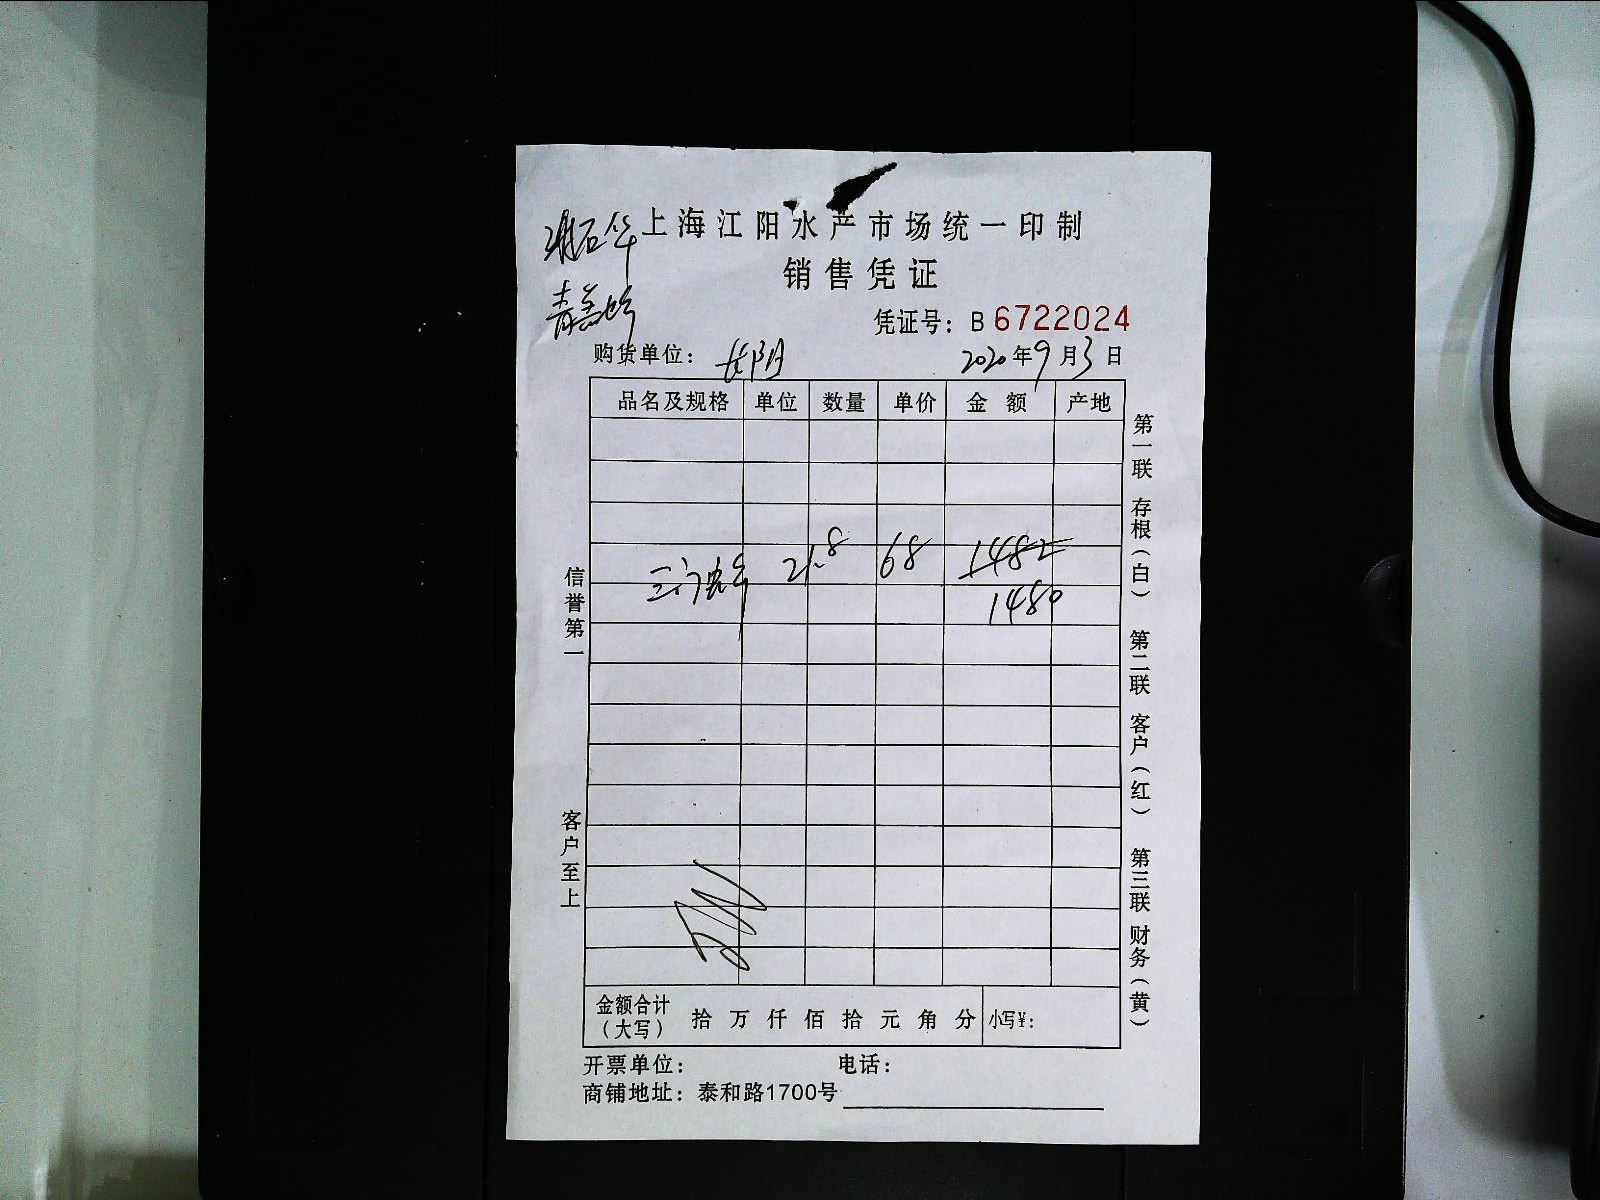 上海江阳水产市场统一印制
销售凭证
凭证号：B 6722024
购货单位：长阳 2020年9月3日
品名及规格 单位 数量 单价 金额 产地
三门 21.8 68 1482
1480
金额合计（大写） 拾 万 仟 佰 拾 元 角 分 小写¥：
开票单位： 电话：
商铺地址：泰和路1700号
信誉第一
客户至上
第一联 存根（白） 第二联 客户（红） 第三联 财务（黄）